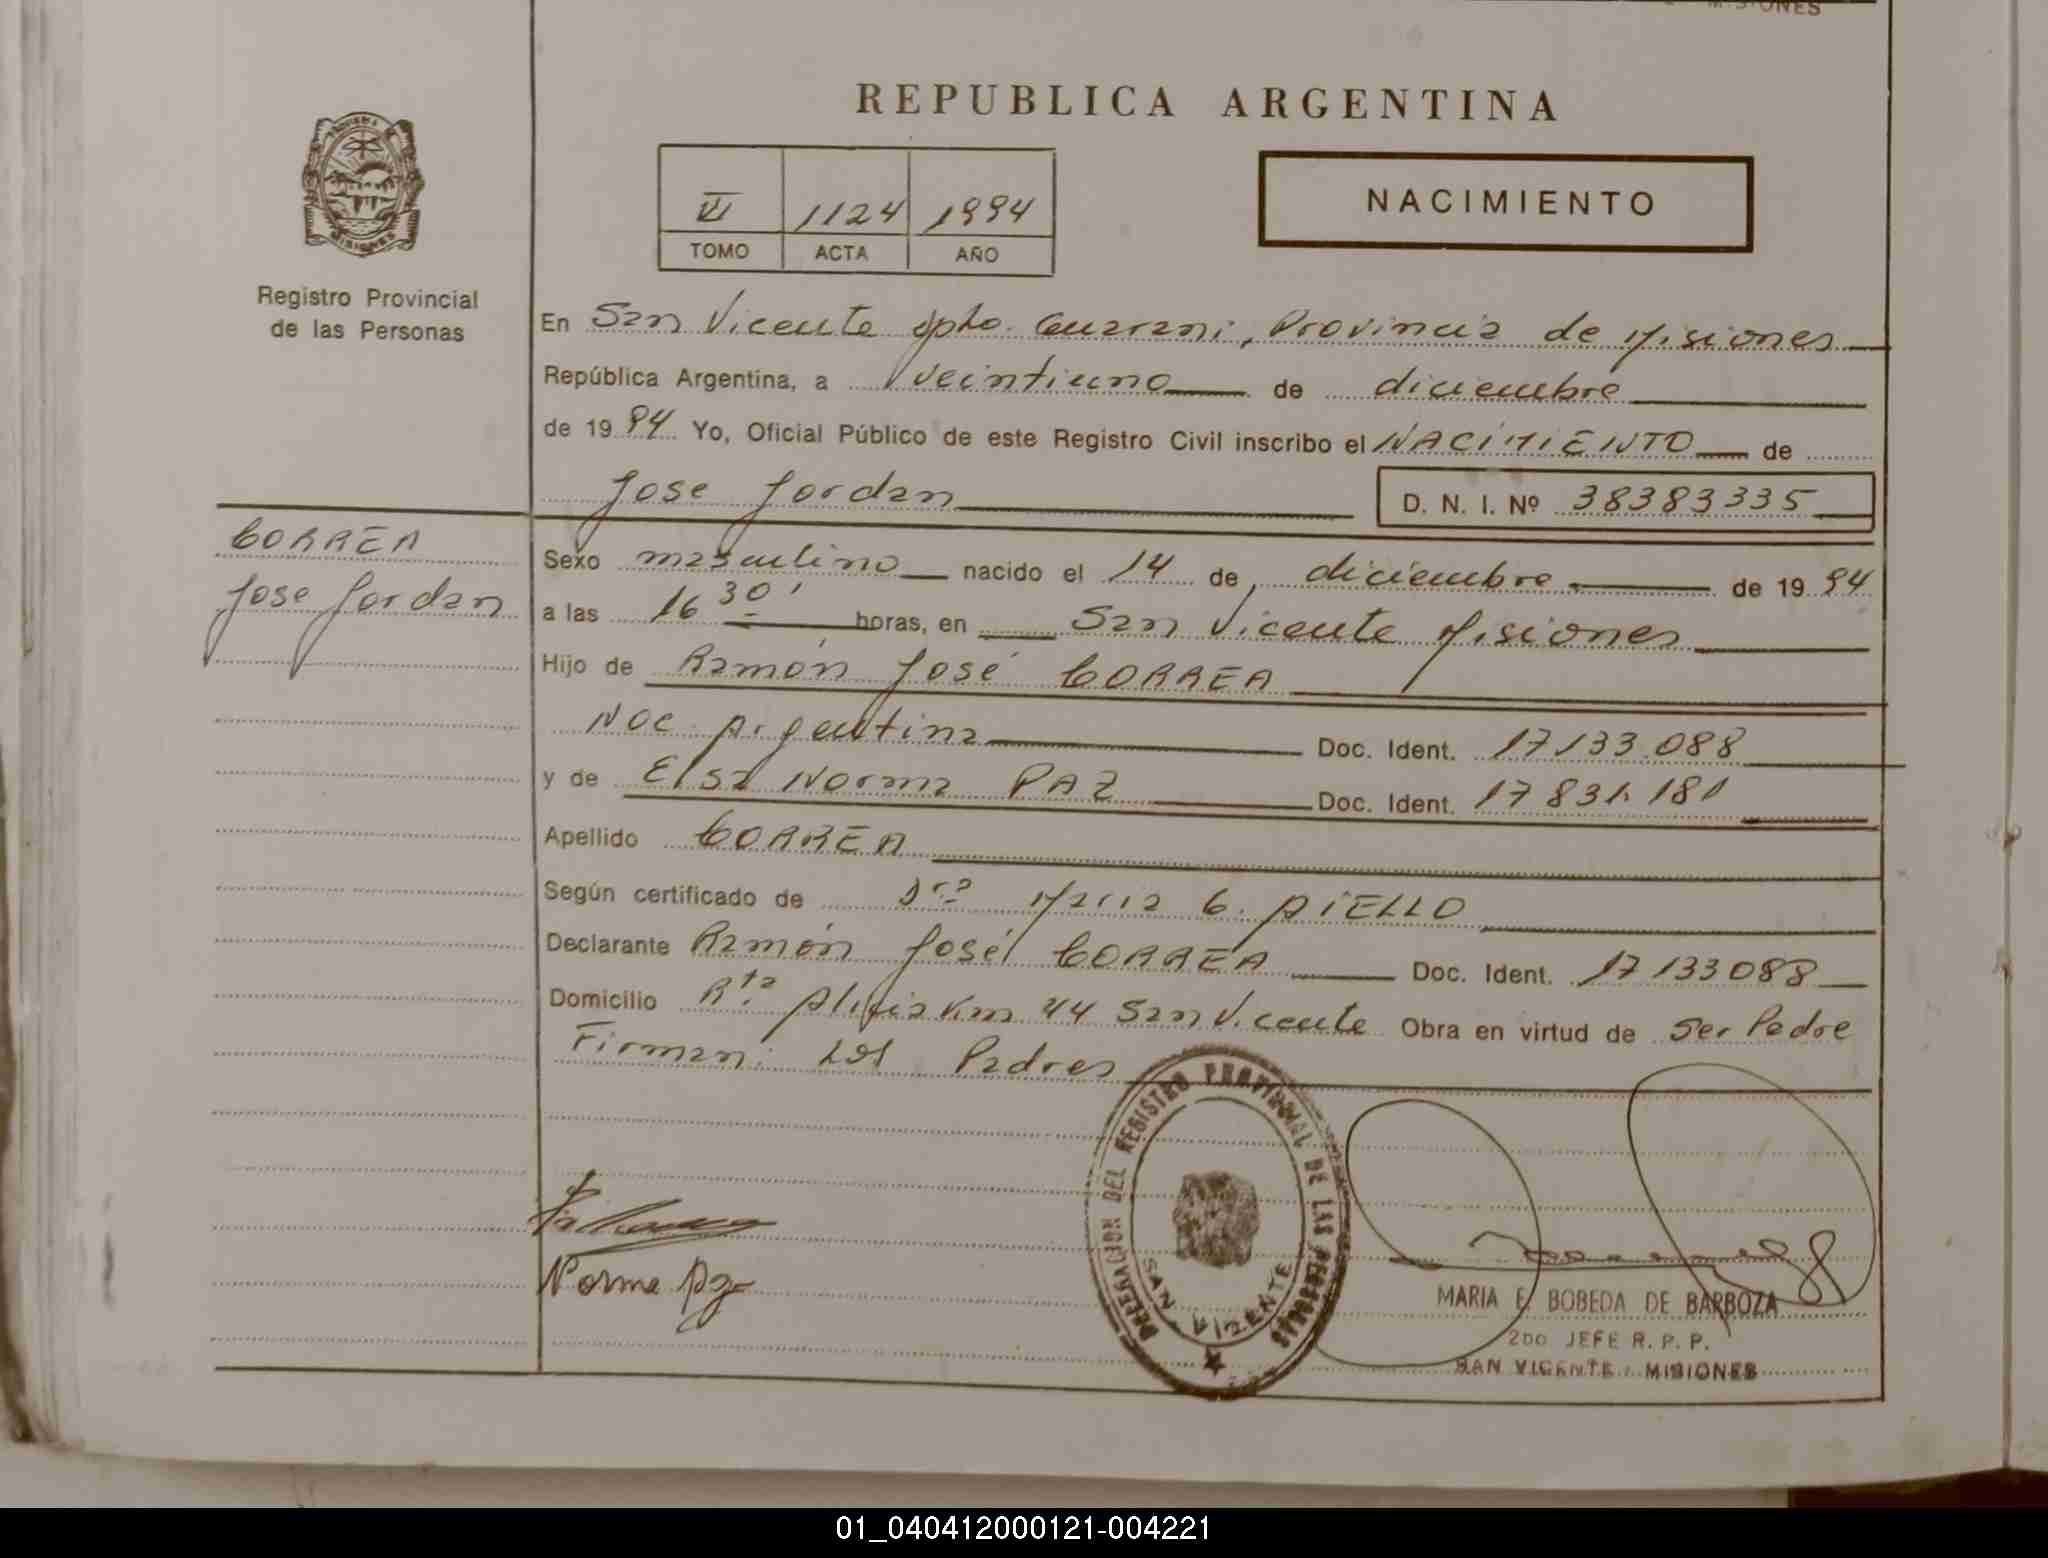 MISIONES
REPUBLICA ARGENTINA
NACIMIENTO
VI 1124 1994
TOMO ACTA AÑO
MISIONES
Registro Provincial
de las Personas
En San Vicente dpto. Guarani, Provincia de Misiones
República Argentina, a veintiuno de diciembre
de 1994 Yo, Oficial Público de este Registro Civil inscribo el NACIMIENTO de
Jose Jordan D. N. I. Nº 38383335
CORREA
Jose Jordan
Sexo masculino nacido el 14 de diciembre de 1994
a las 16 30' horas, en San Vicente Misiones
Hijo de Ramón José CORREA
Nac. Argentina Doc. Ident. 17.133.088
y de Elsa Norma PAZ Doc. Ident. 17 831.181
Apellido CORREA
Según certificado de Dra Maria G. AIELLO
Declarante Ramón José CORREA Doc. Ident. 17133088
Domicilio Rta Alicia Km 44 San Vicente Obra en virtud de Ser Padre
Firman: Los Padres
DELEGACION DEL REGISTRO PROVINCIAL DE LAS PERSONAS
SAN VICENTE
Norma Paz
MARIA E. BOBEDA DE BARBOZA
2DO JEFE R. P. P.
SAN VICENTE - MISIONES
01_040412000121-004221